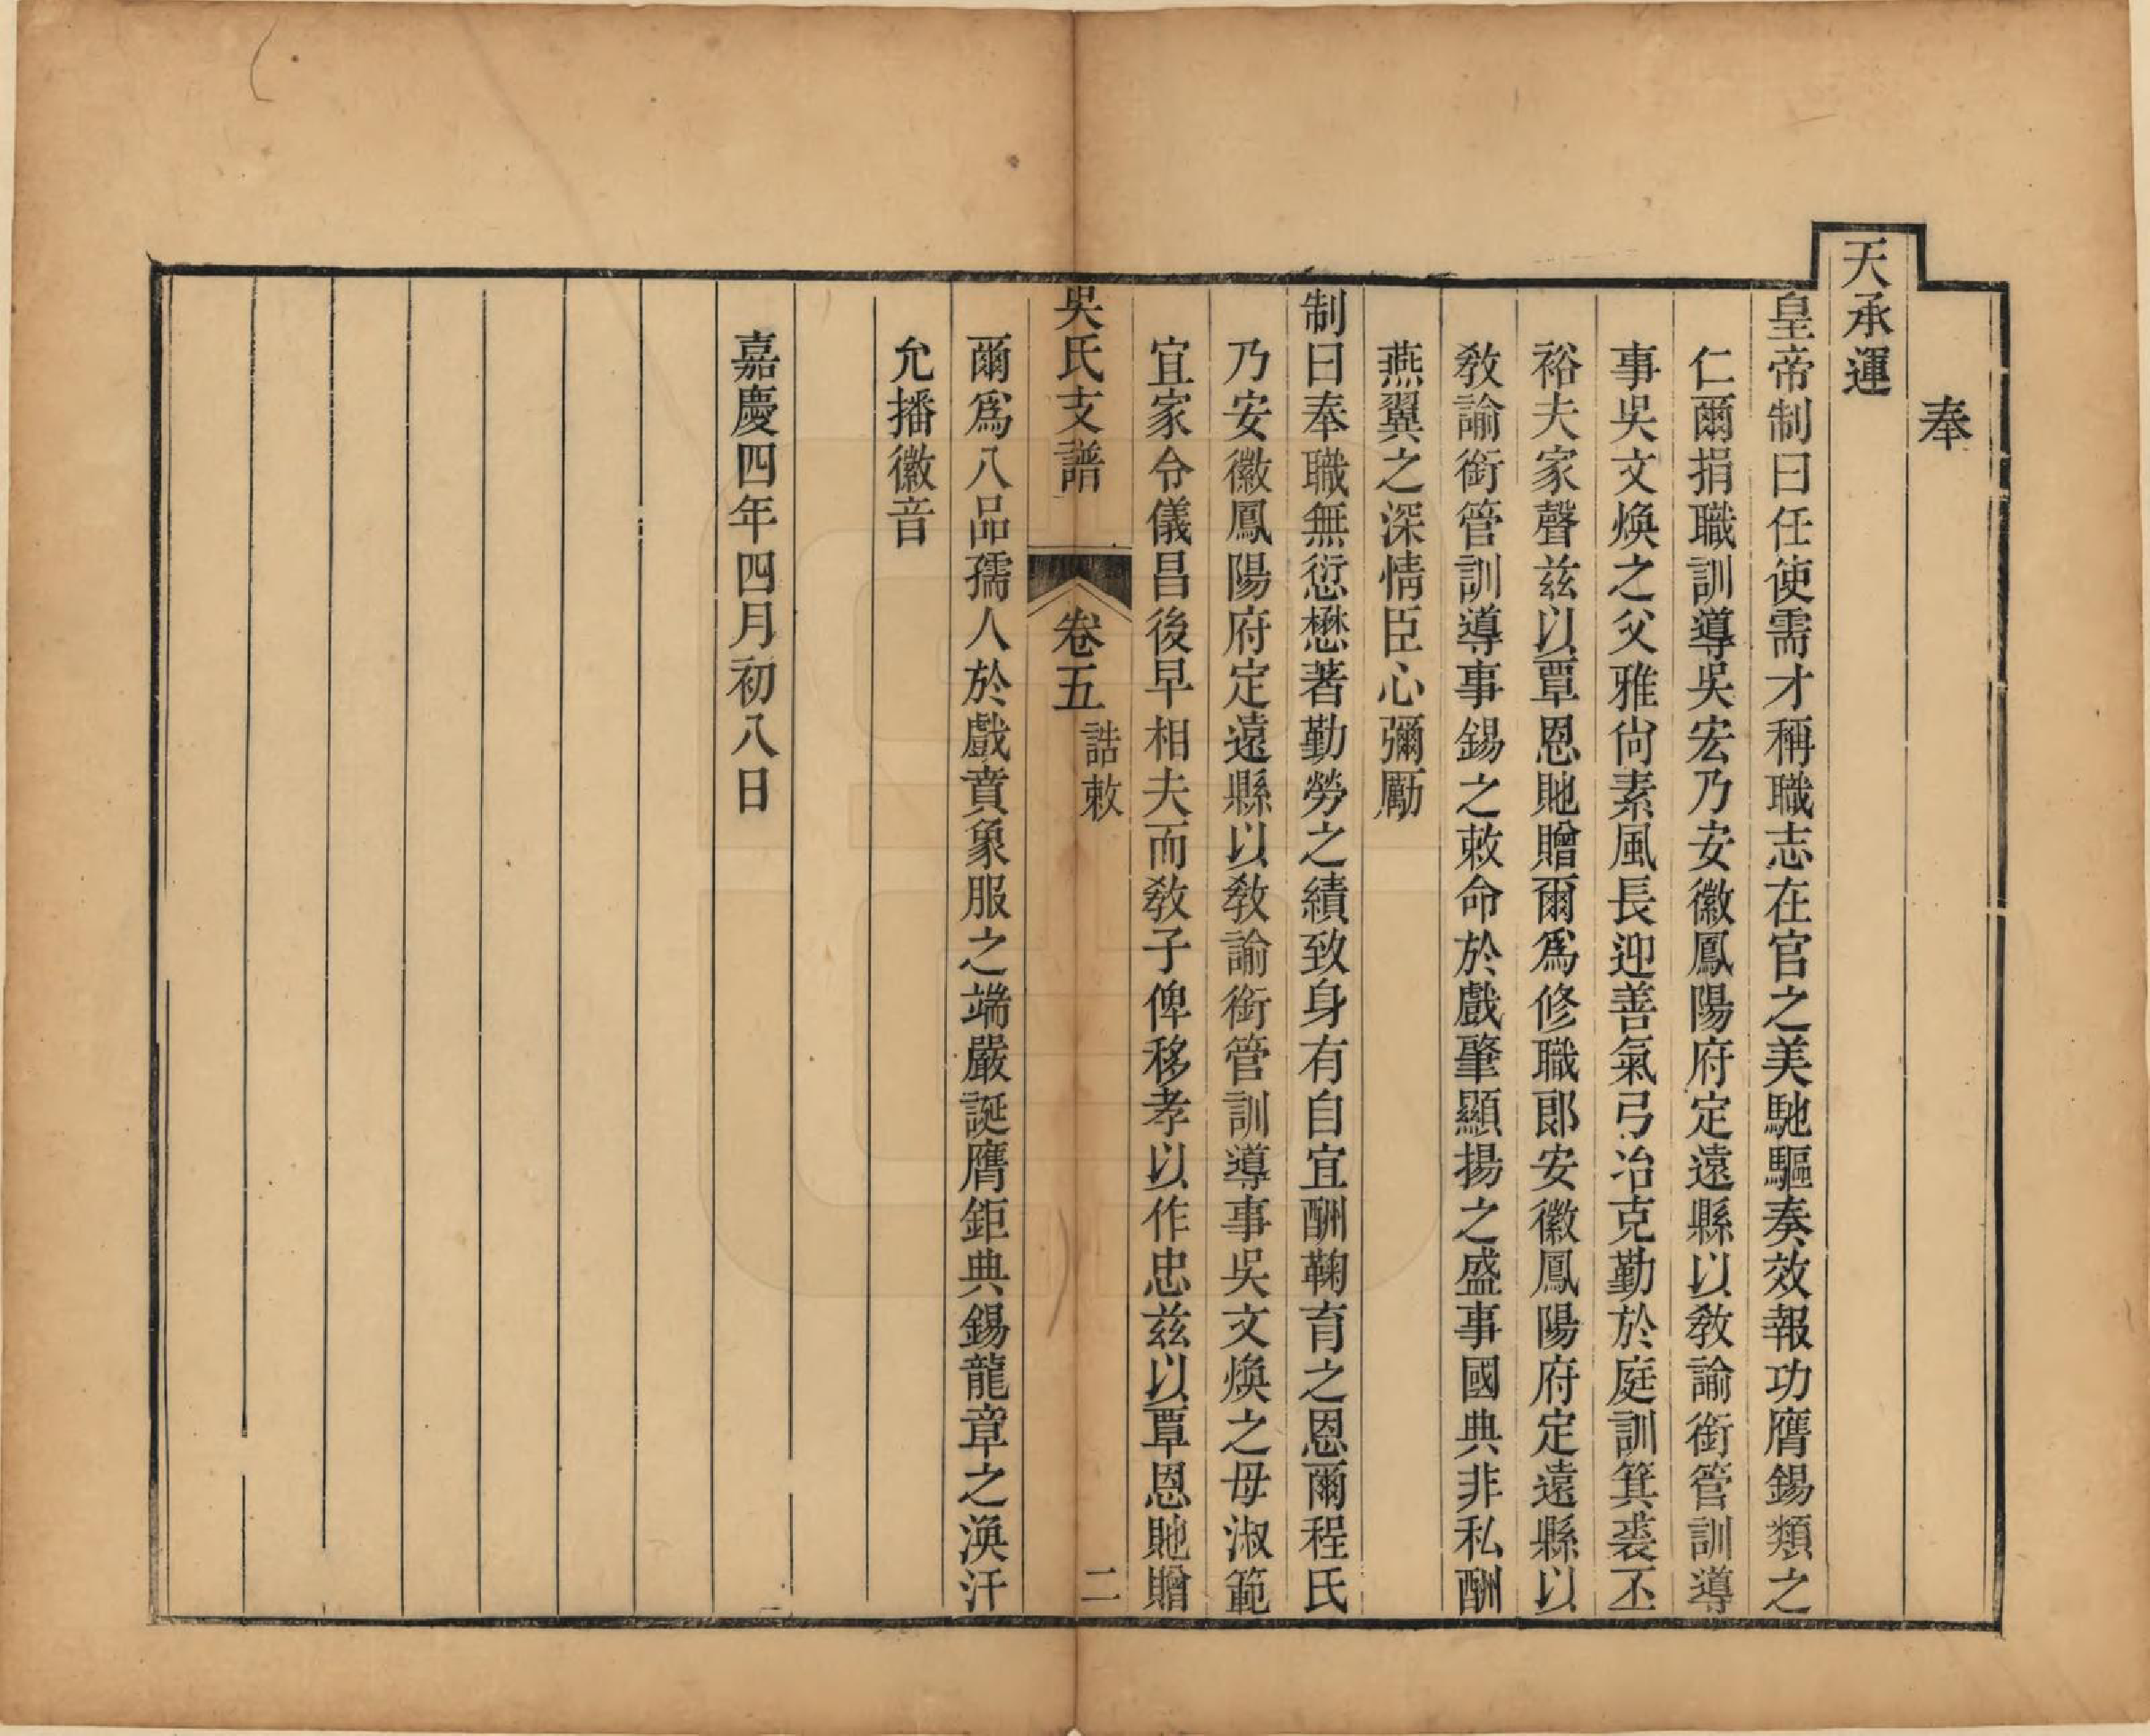 奉
天承運
皇帝制曰任使需才稱職志在官之美馳驅奏效報功膺錫類之
仁爾捐職訓導吳宏乃安徽鳳陽府定遠縣以敎諭銜管訓導
事吳文煥之父雅尙素風長迎善氣弓冶克勤於庭訓箕裘丕
裕夫家聲兹以覃恩貤贈爾爲修職郎安徽鳳陽府定遠縣以
敎諭銜管訓導事錫之敕命於戲肇顯揚之盛事國典非私酬
燕翼之深情臣心彌勵
制曰奉職無愆懋著勤勞之績致身有自宜酬鞠育之恩爾程氏
乃安徽鳳陽府定遠縣以敎諭銜管訓導事吳文煥之母淑範
宜家令儀昌後早相夫而敎子俾移孝以作忠兹以覃恩貤贈
吳氏支譜
卷五
誥敕
二
爾爲八品孺人於戲賁象服之端嚴誕膺鉅典錫龍章之渙汗
允播徽音
嘉慶四年四月初八日